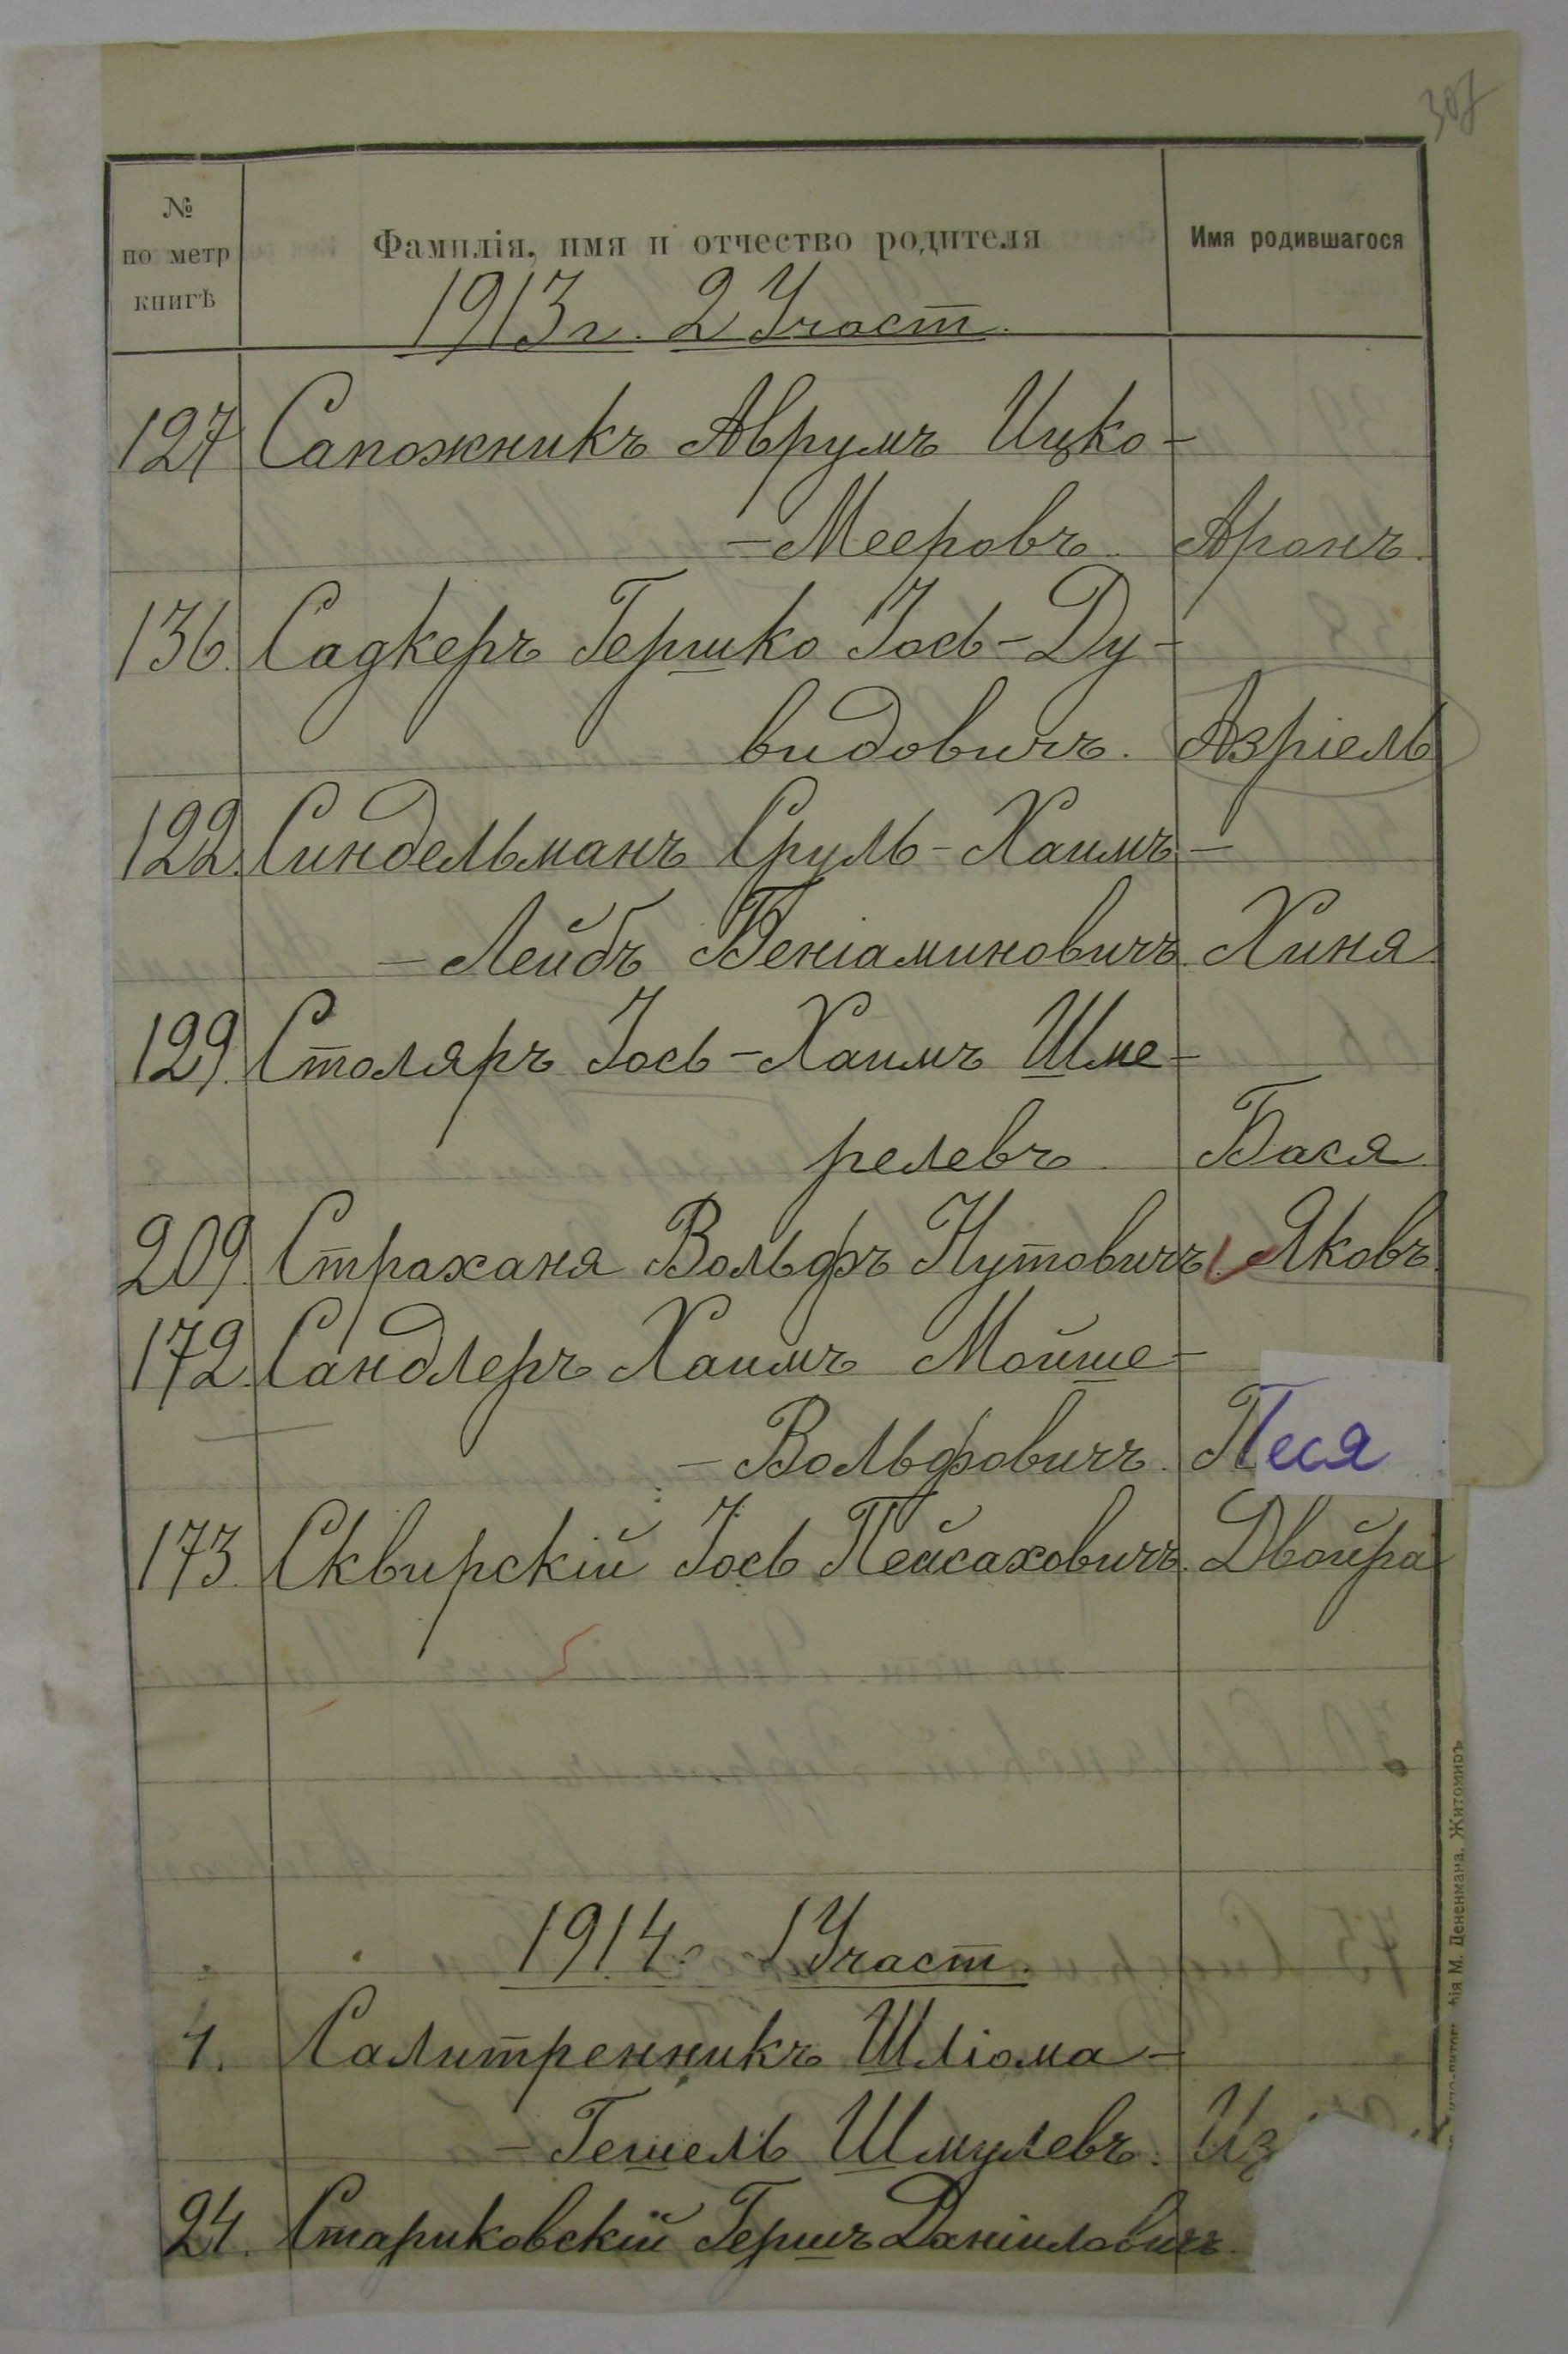 307
№
по метр
книгѣ
Фамилія, имя и отчество родителя
Имя родившагося
1913 г. 2 Участ.
127 Сапожникъ Аврумъ Ицко-
-Мееровъ. Аронъ.
136. Садкеръ Гершко Іось-Ду-
видовичъ. Азріель
122. Синдельманъ Сруль-Хаимъ-
-Лейбъ Веніаминовичъ. Хиня.
129. Столяръ Іось-Хаимъ Шме-
релевъ. Бася.
209. Страханя Вольфъ Нутовичъ. Яковъ.
172. Сандлеръ Хаимъ Мойше-
-Вольфовичъ. Песя
173. Сквирскій Іось Пейсаховичъ. Двойра
1914. 1 Участ.
4. Салитренникъ Шліома-
-Гешель Шмулевъ.
24. Стариковскій Гершъ Даніиловичъ.
М. Дененмана, Житомиръ